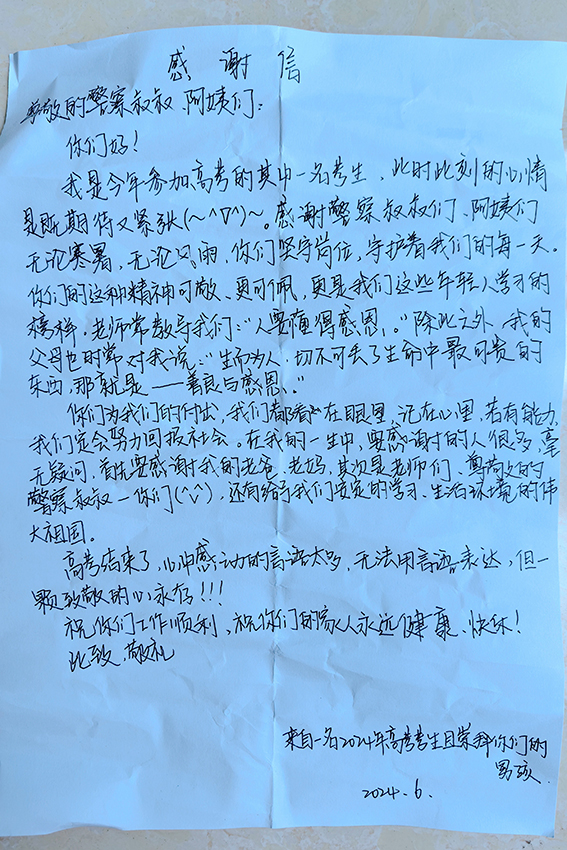 感谢信
尊敬的警察叔叔、阿姨们：
你们好！
我是今年参加高考的其中一名考生，此时此刻的心情
是既期待又紧张(～^∇^)～。感谢警察叔叔们、阿姨们
无论寒暑，无论风雨，你们坚守岗位，守护着我们的每一天。
你们的这种精神可敬、更可佩，更是我们这些年轻人学习的
榜样。老师常教导我们："人要懂得感恩。"除此之外，我的
父母也时常对我说："生而为人，切不可丢了生命中最可贵的
东西，那就是——善良与感恩。"
你们为我们的付出，我们都看在眼里，记在心里，若有能力，
我们定会努力回报社会。在我的一生中，要感谢的人很多，毫
无疑问，首先要感谢我的老爸、老妈，其次是老师们、尊敬的
警察叔叔—你们(^v^)，还有给予我们安定的学习、生活环境的伟
大祖国。
高考结束了，心中感动的言语太多，无法用言语表达，但一
颗致敬的心永存！！！
祝你们工作顺利，祝你们的家人永远健康、快乐！
此致，敬礼
来自一名2024年高考考生且崇拜你们的
男孩.
2024.6.